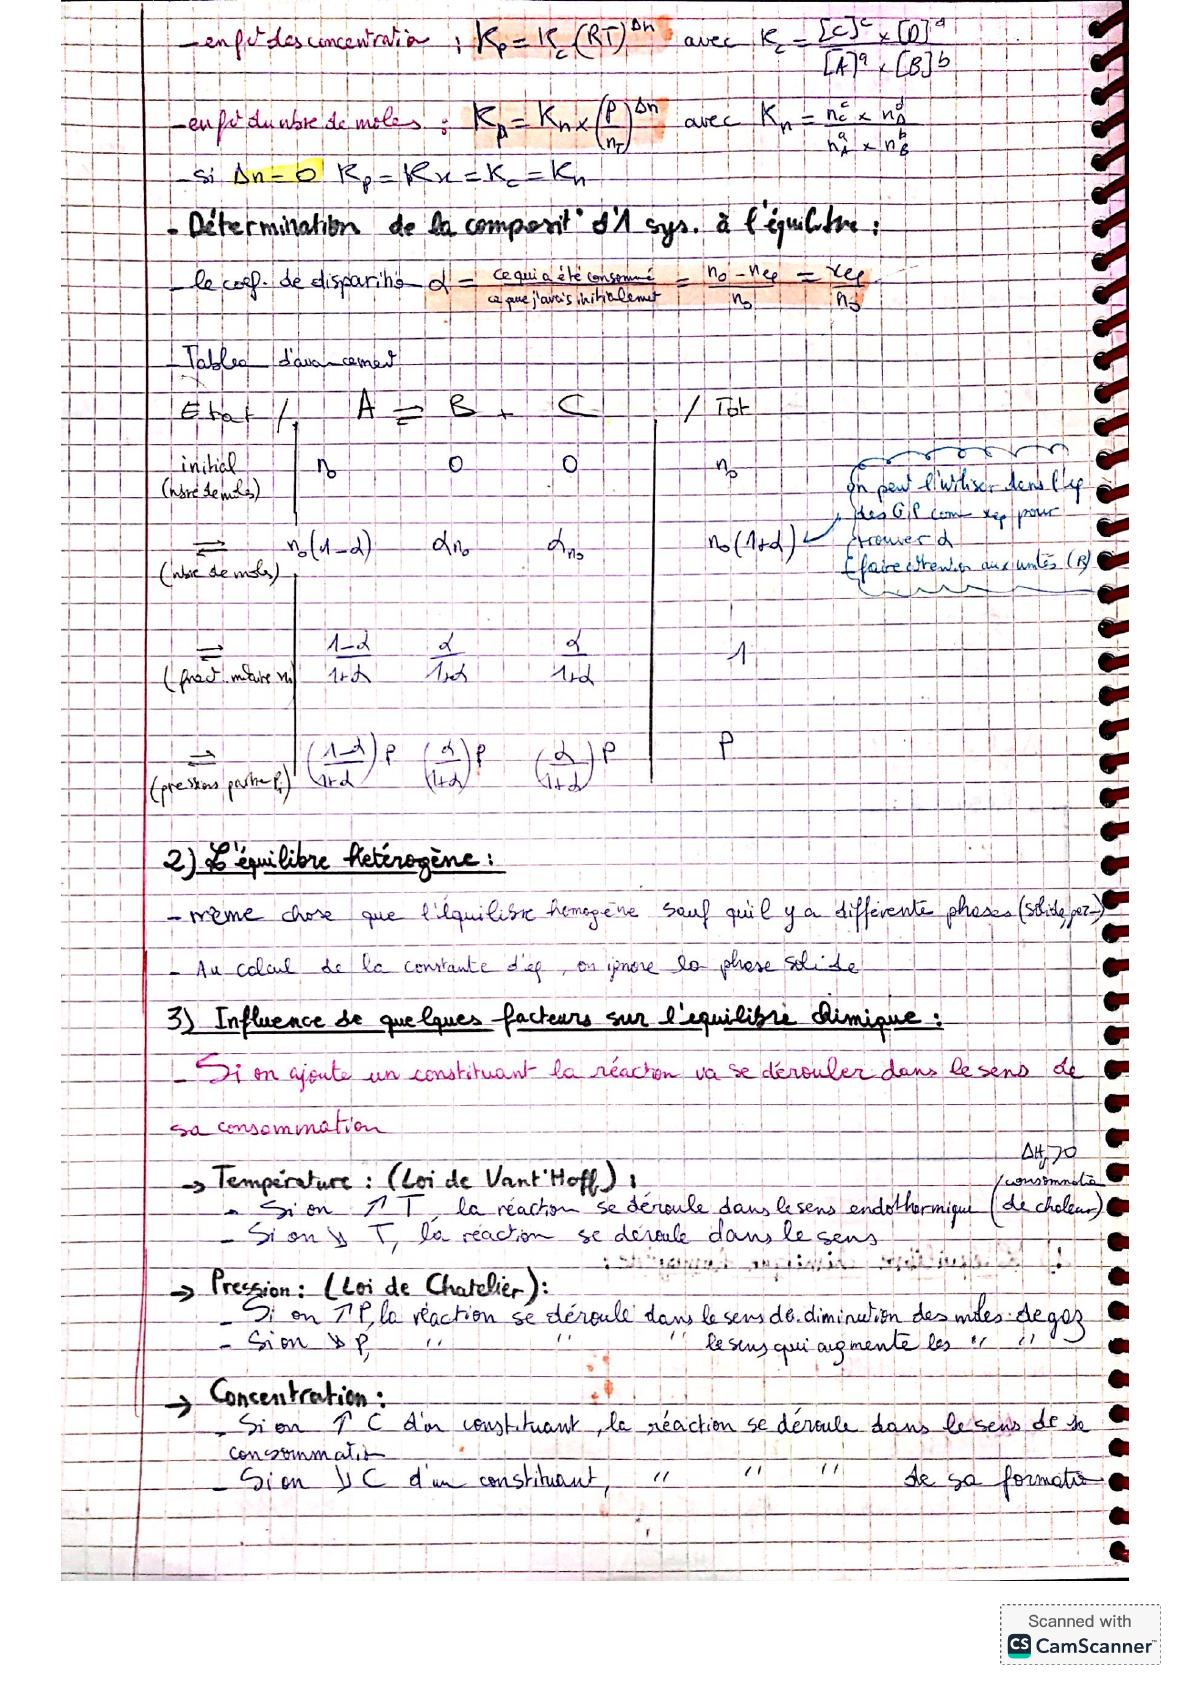 - en fct des concentration : Kp = Kc (RT)^Δn avec Kc = [C]^c × [D]^d / [A]^a × [B]^b
- en fct du nbre de moles : Kp = Kn × (P/nT)^Δn avec Kn = nC^c × nD^d / nA^a × nB^b
- Si Δn = 0 Kp = Kx = Kc = Kn
- Détermination de la composit° d'1 sys. à l'équilibre :
- le coef. de disparitio α = ce qui a été consommé / ce que j'avais initialemet = n0 - néq / n0 = xéq / n0
- Tableau d'avancement
Etat / A ⇌ B + C / Tot
initial n0 0 0 n0
(nbre de moles)
⇌ n0(1-α) αn0 αn0 n0(1+α)
(nbre de moles)
on peut l'utiliser dans l'éq
des GP com xéq pour
trouver α
(faire attention aux unités (R)
⇌ 1-α/1+α α/1+α α/1+α 1
(fract. molaire xi)
⇌ (1-α/1+α)P (α/1+α)P (α/1+α)P P
(pressions partie Pi)
2) L'équilibre hétérogène :
- même chose que l'équilibre homogène sauf qu'il y a différente phases (solide, gaz-)
- Au calcul de la constante d'éq, on ignore la phase solide
3) Influence de quelques facteurs sur l'equilibre chimique :
- Si on ajoute un constituant la réaction va se dérouler dans le sens de
sa consommation
ΔHr>0
→ Température : (Loi de Vant'Hoff) : / consommatio
- Si on ↗ T, la réaction se déroule dans le sens endothermique (de chaleur)
- Si on ↘ T, la réaction se déroule dans le sens
→ Pression : (Loi de Chatelier) :
- Si on ↗ P, la réaction se déroule dans le sens de diminution des moles de gaz
- Si on ↘ P, " " " le sens qui augmente les " "
→ Concentration :
- Si on ↗ C d'un constituant, la réaction se déroule dans le sens de sa
consommatio
- Si on ↘ C d'un constituant, " " " de sa formatio
Scanned with
CS CamScanner